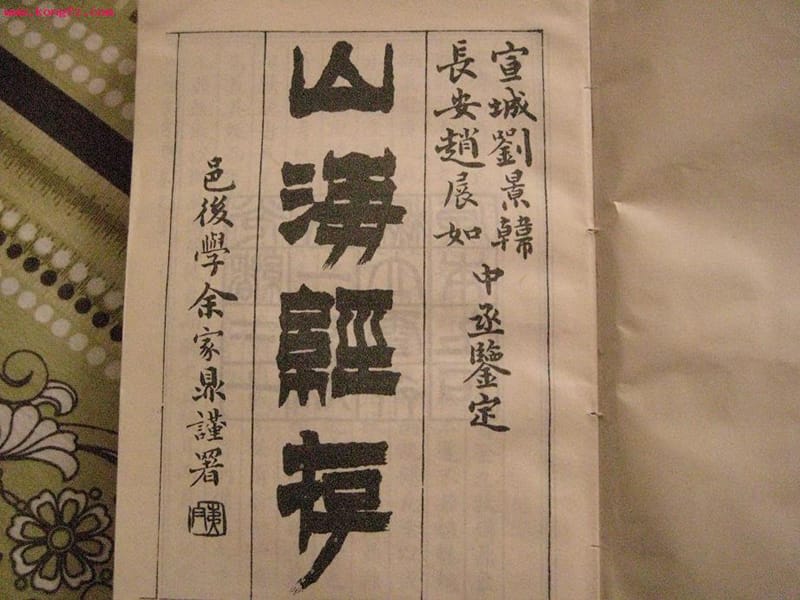 www.kongfz.com
宣城劉景韓
長安趙展如
中丞鑒定
山海經存
邑後學余家鼎謹署